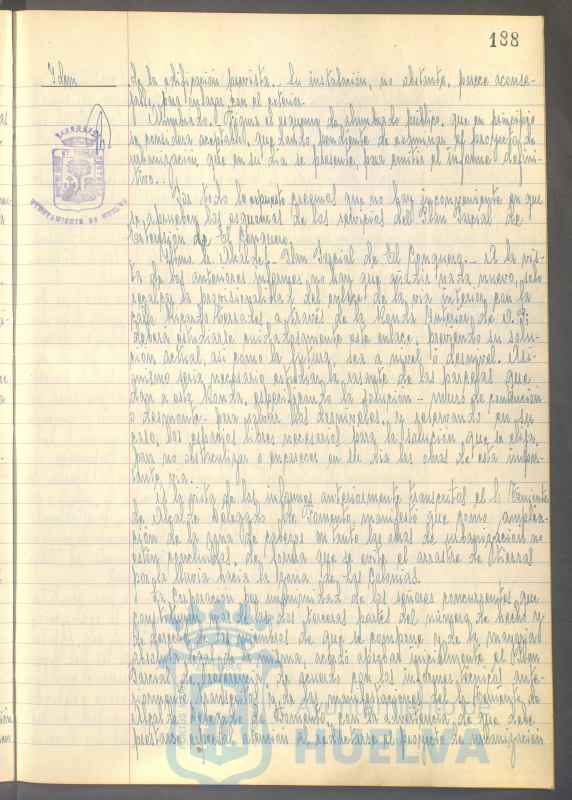 188
Idem
de la edificación prevista.. Su instalación, no obstante, parece aconse-
jable, para enlazar con el exterior.
Alumbrado.- Figura el esquema de alumbrado público, que en principio
se considera aceptable, quedando pendiente de examinar el proyecto de
urbanización que en su día se presente, para emitir el informe defini-
tivo..
Por todo lo expuesto creemos que no hay inconveniente en que
se aprueben los esquemas de los servicios del Plan Parcial de
Extensión de El Conquero.
Plan Parcial de El Conquero.- A la vis-
ta de los anteriores informes, no hay que añadir nada nuevo, solo
recalcar la provisionalidad del enlace de la vía interior con la
calle Ricardo Terrades a través de la Ronda Interior de
deberá estudiarse cuidadosamente este enlace, previendo su solu-
ción actual, así como la futura, sea a nivel ó desnivel. Asi-
mismo sería necesario estudiar la rasante de las parcelas que
dan a esta Ronda, especificando la solución - muro de contención
o desmonte - para salvar los desniveles y reservando en su
caso, los espacios libres necesarios para la solución que se elija,
para no obstaculizar o encarecer en su día las obras de esta impor-
tante vía.
A la vista de los informes anteriormente transcritos el Sr. Teniente
de Alcalde Delegado de Fomento, manifestó que como
ción de la zona de cabezos en tanto las obras de urbanización no
estén concluidas, de forma que se evite el arrastre de tierras
por la lluvia hacia la zona de las Colonias.
La Corporación, por unanimidad de los señores concurrentes, que
constituyen más de las dos terceras partes del número de hecho y
de derecho de los miembros de que se compone y de la mayoría
absoluta legal de la misma, acordó aprobar inicialmente el Plan
Parcial de referencia de acuerdo con los informes técnicos ante-
riormente transcritos y de las manifestaciones del Sr. Teniente de
Alcalde Delegado de Fomento, con la advertencia de que debe
prestarse especial atención al redactarse el proyecto de urbanización
AYUNTAMIENTO DE HUELVA
Ayuntamiento de
HUELVA